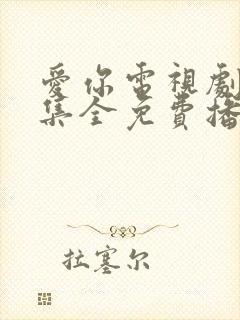 愛你電視劇
集全免費播
拉塞尔